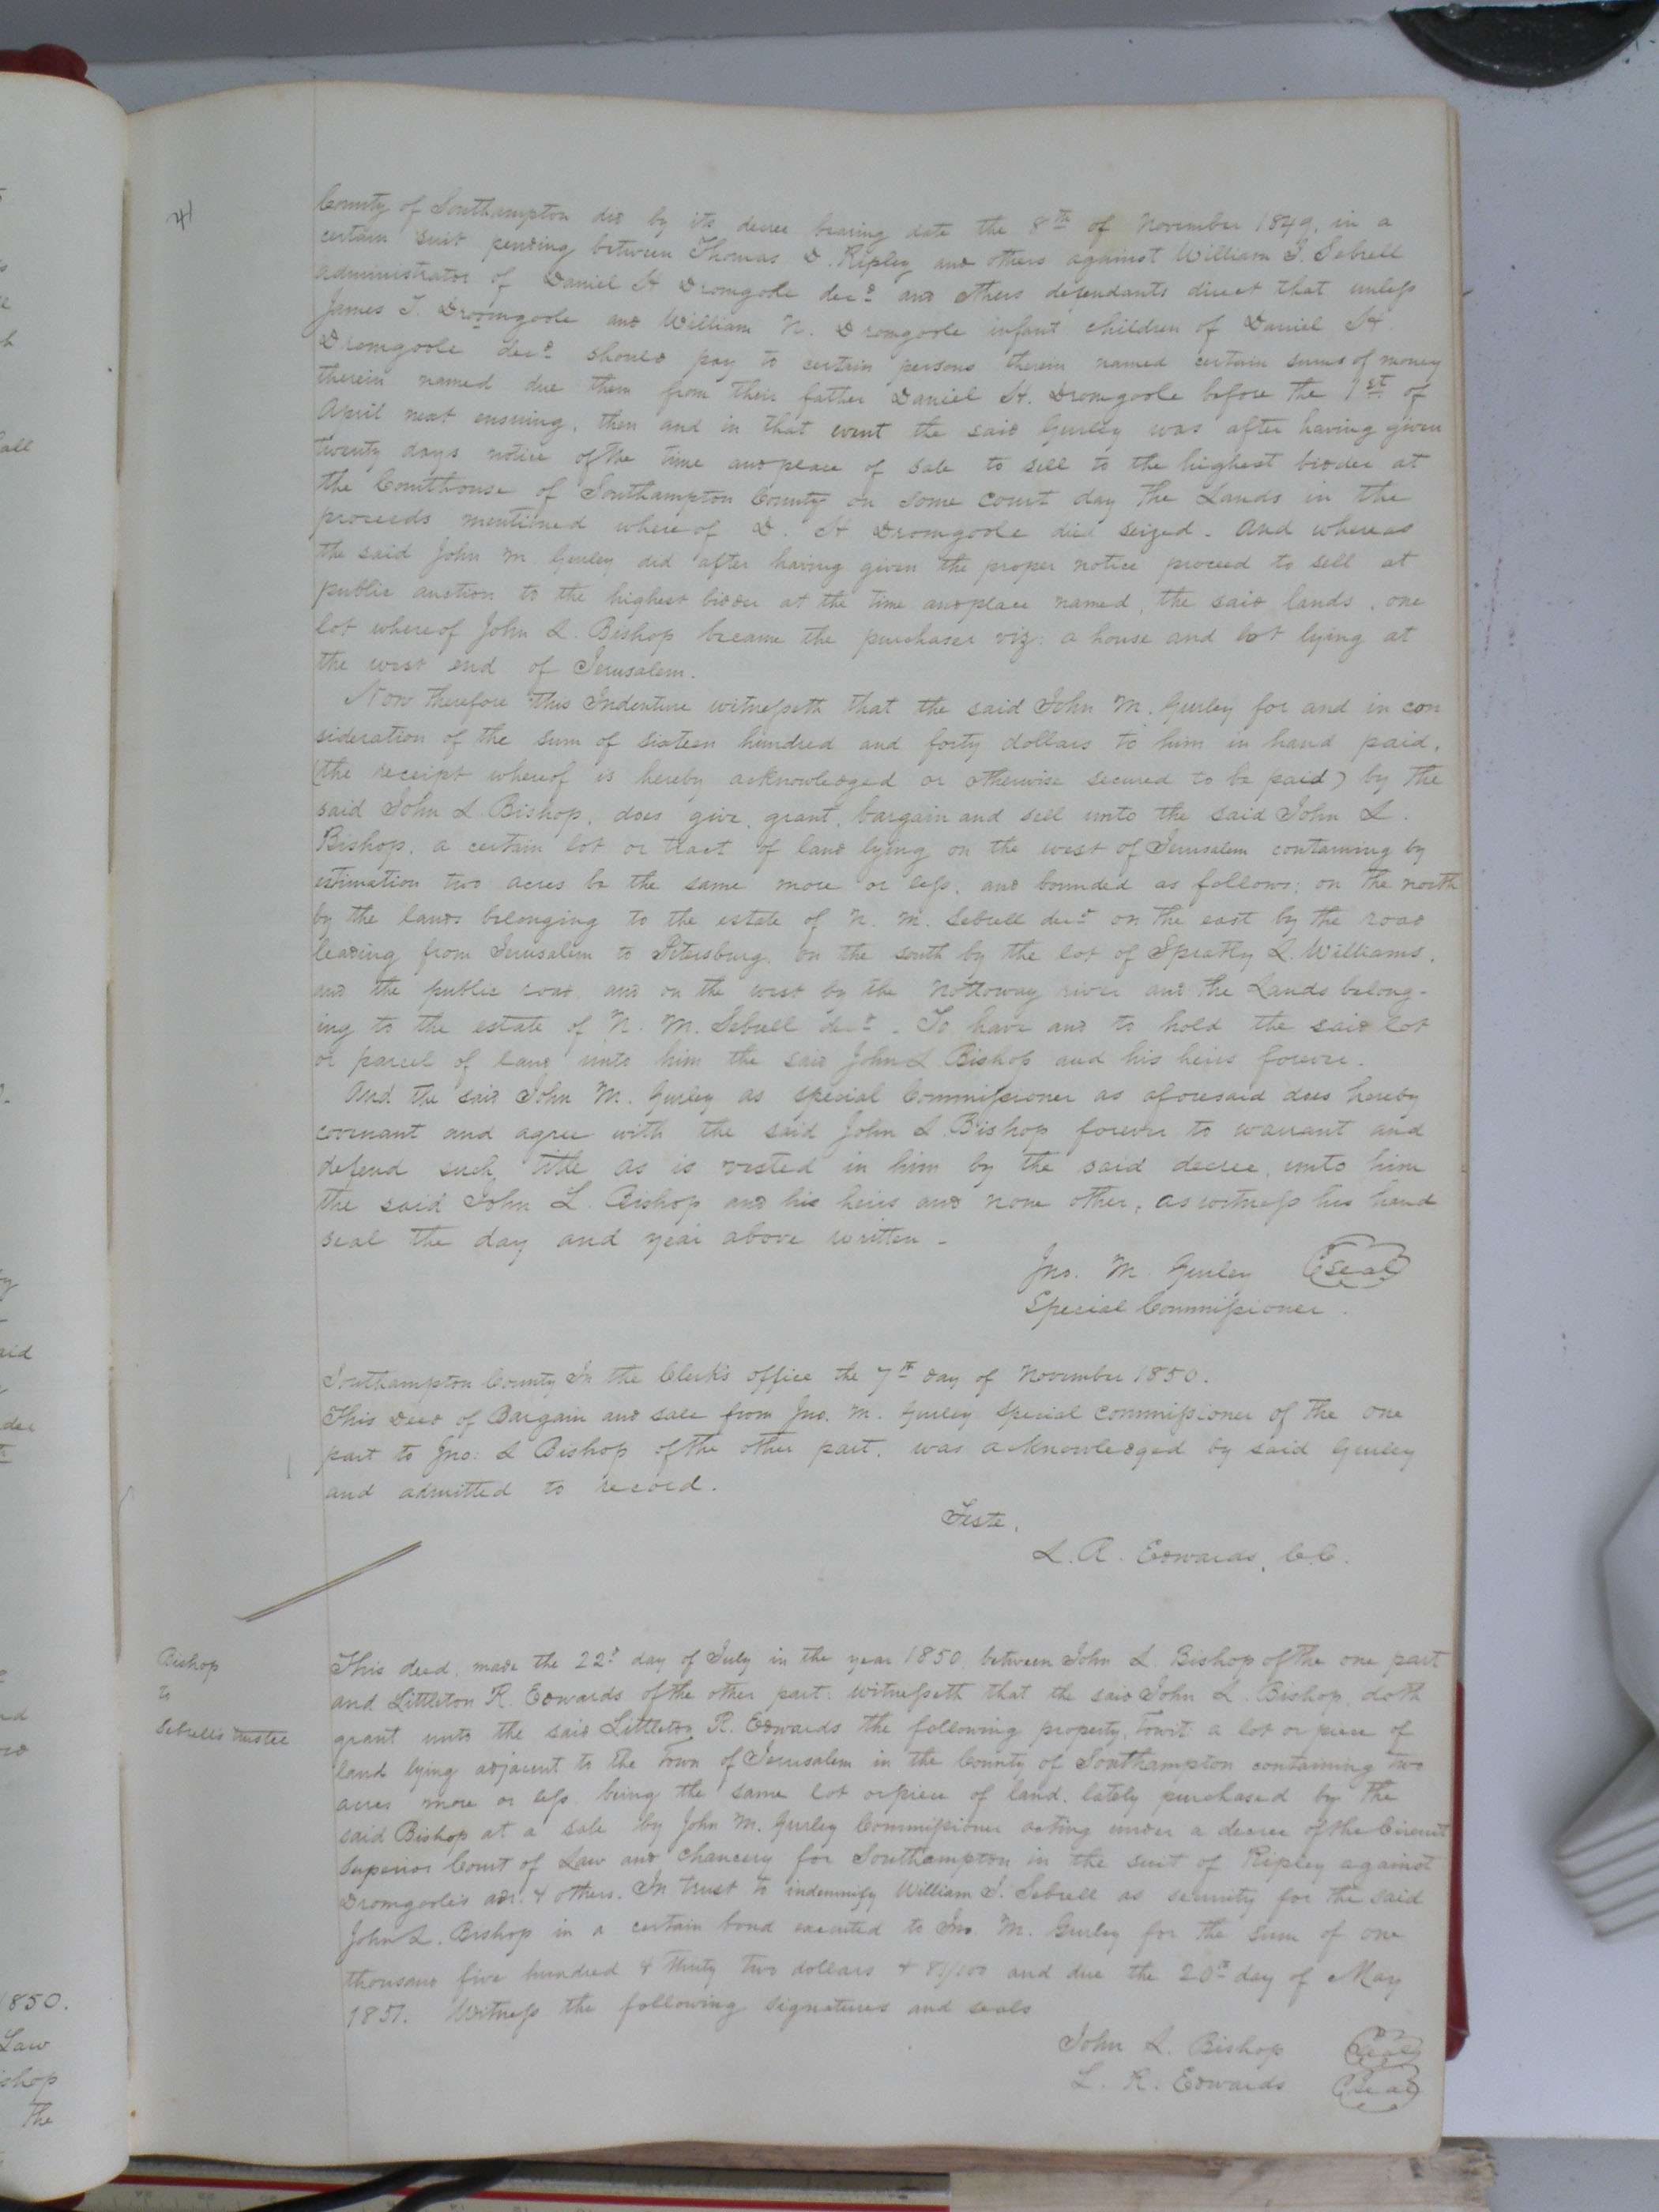 41
County of Southampton did by its decree bearing date the 8th of November 1849, in a
certain suit pending between Thomas D. Ripley and others against William J. Sebrell
administrator of Daniel H Dromgoole decd and others defendants direct that unless
James T. Dromgoole and William N. Dromgoole infant children of Daniel H.
Dromgoole decd should pay to certain persons therein named certain sums of money
therein named due them from their father Daniel H. Dromgoole before the 1st of
April next ensuing, then and in that event the said Gurley was after having given
twenty days notice of the time and place of sale to sell to the highest bidder at
the Courthouse of Southampton County on some court day the Lands in the
proceeds mentioned whereof D. H Dromgoole died seized. And whereas
the said John M Gurley did after having given the proper notice proceed to sell at
public auction to the highest bidder at the time and place named, the said lands, one
lot whereof John L. Bishop became the purchaser viz: a house and lot lying at
the west end of Jerusalem.
Now therefore this Indenture witnesseth that the said John M. Gurley for and in con
sideration of the sum of sixteen hundred and forty dollars to him in hand paid,
(the receipt whereof is hereby acknowledged or otherwise secured to be paid) by the
said John L Bishop, does give, grant, bargain and sell unto the said John L.
Bishop, a certain lot or tract of land lying on the west of Jerusalem containing by
estimation two acres be the same more or less, and bounded as follows; on the north
by the lands belonging to the estate of N. M. Sebrell decd on the east by the road
leading from Jerusalem to Petersburg, on the south by the lot of Spratly L. Williams,
and the public road, and on the west by the Nottoway river and the Lands belong-
ing to the estate of N. M. Sebrell decd. To have and to hold the said lot
or parcel of land unto him the said John L Bishop and his heirs forever.
And the said John M. Gurley as special Commissioner as aforesaid does hereby
covenant and agree with the said John L. Bishop forever to warrant and
defend such title as is vested in him by the said decree, unto him
the said John L. Bishop and his heirs and none other, as witness his hand
seal the day and year above written -
Jno. M. Gurley Seal
Special Commissioner.
Southampton County In the Clerk's office the 7th day of November 1850.
This Deed of Bargain and sale from Jno. M. Gurley special commissioner of the one
part to Jno: L Bishop of the other part, was acknowledged by said Gurley
and admitted to record.
Teste,
L. R. Edwards, C.C.
Bishop
to
Sebrell's trustee
This deed, made the 22d day of July in the year 1850, between John L. Bishop of the one part
and Littleton R. Edwards of the other part: witnesseth that the said John L. Bishop, doth
grant unto the said Littleton R. Edwards the following property, towit: a lot or piece of
land lying adjacent to the Town of Jerusalem in the County of Southampton containing two
acres more or less being the same lot or piece of land, lately purchased by the
said Bishop at a sale by John M. Gurley Commissioner acting under a decree of the Circuit
Superior Court of Law and Chancery for Southampton in the suit of Ripley against
Dromgoole's adr. & others. In trust to indemnify William J. Sebrell as security for the said
John L. Bishop in a certain bond executed to Jno. M. Gurley for the sum of one
thousand five hundred & thirty two dollars & 81/100 and due the 20th day of May
1851. Witness the following signatures and seals
John L. Bishop Seal
L. R. Edwards Seal
850.
Law
shop
The